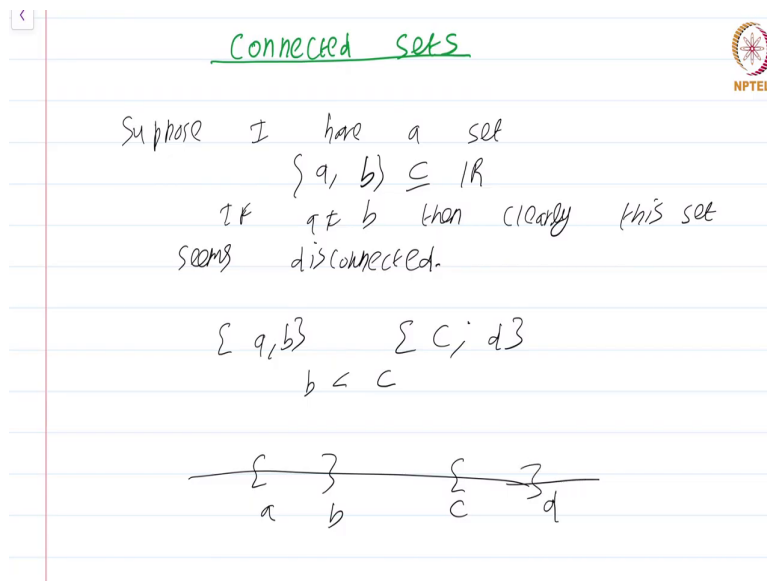 Connected sets
NPTEL
Suppose I have a set
{a, b} ⊆ ℝ
If a ≠ b then clearly this set
seems disconnected.
{a, b} {c, d}
b < c
{ } { }
a b c d